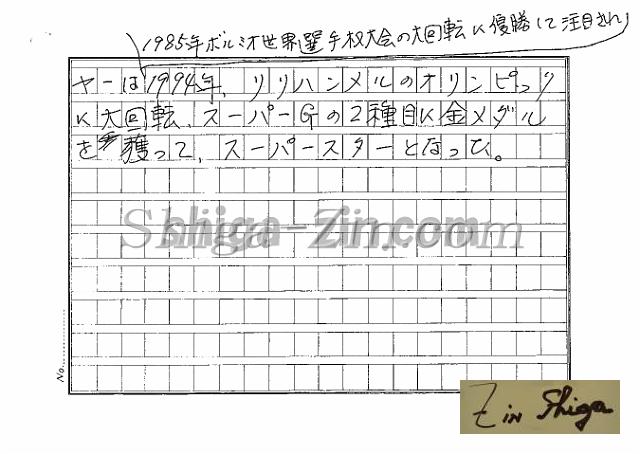 1985年ボルミオ世界選手权大会の大回転に優勝して注目され
ヤーは1994年、リリハンメルのオリンピック
に大回転、スーパーGの2種目に金メダル
を獲って、スーパースターとなった。
Shiga-Zin.com
No.
Zin Shiga